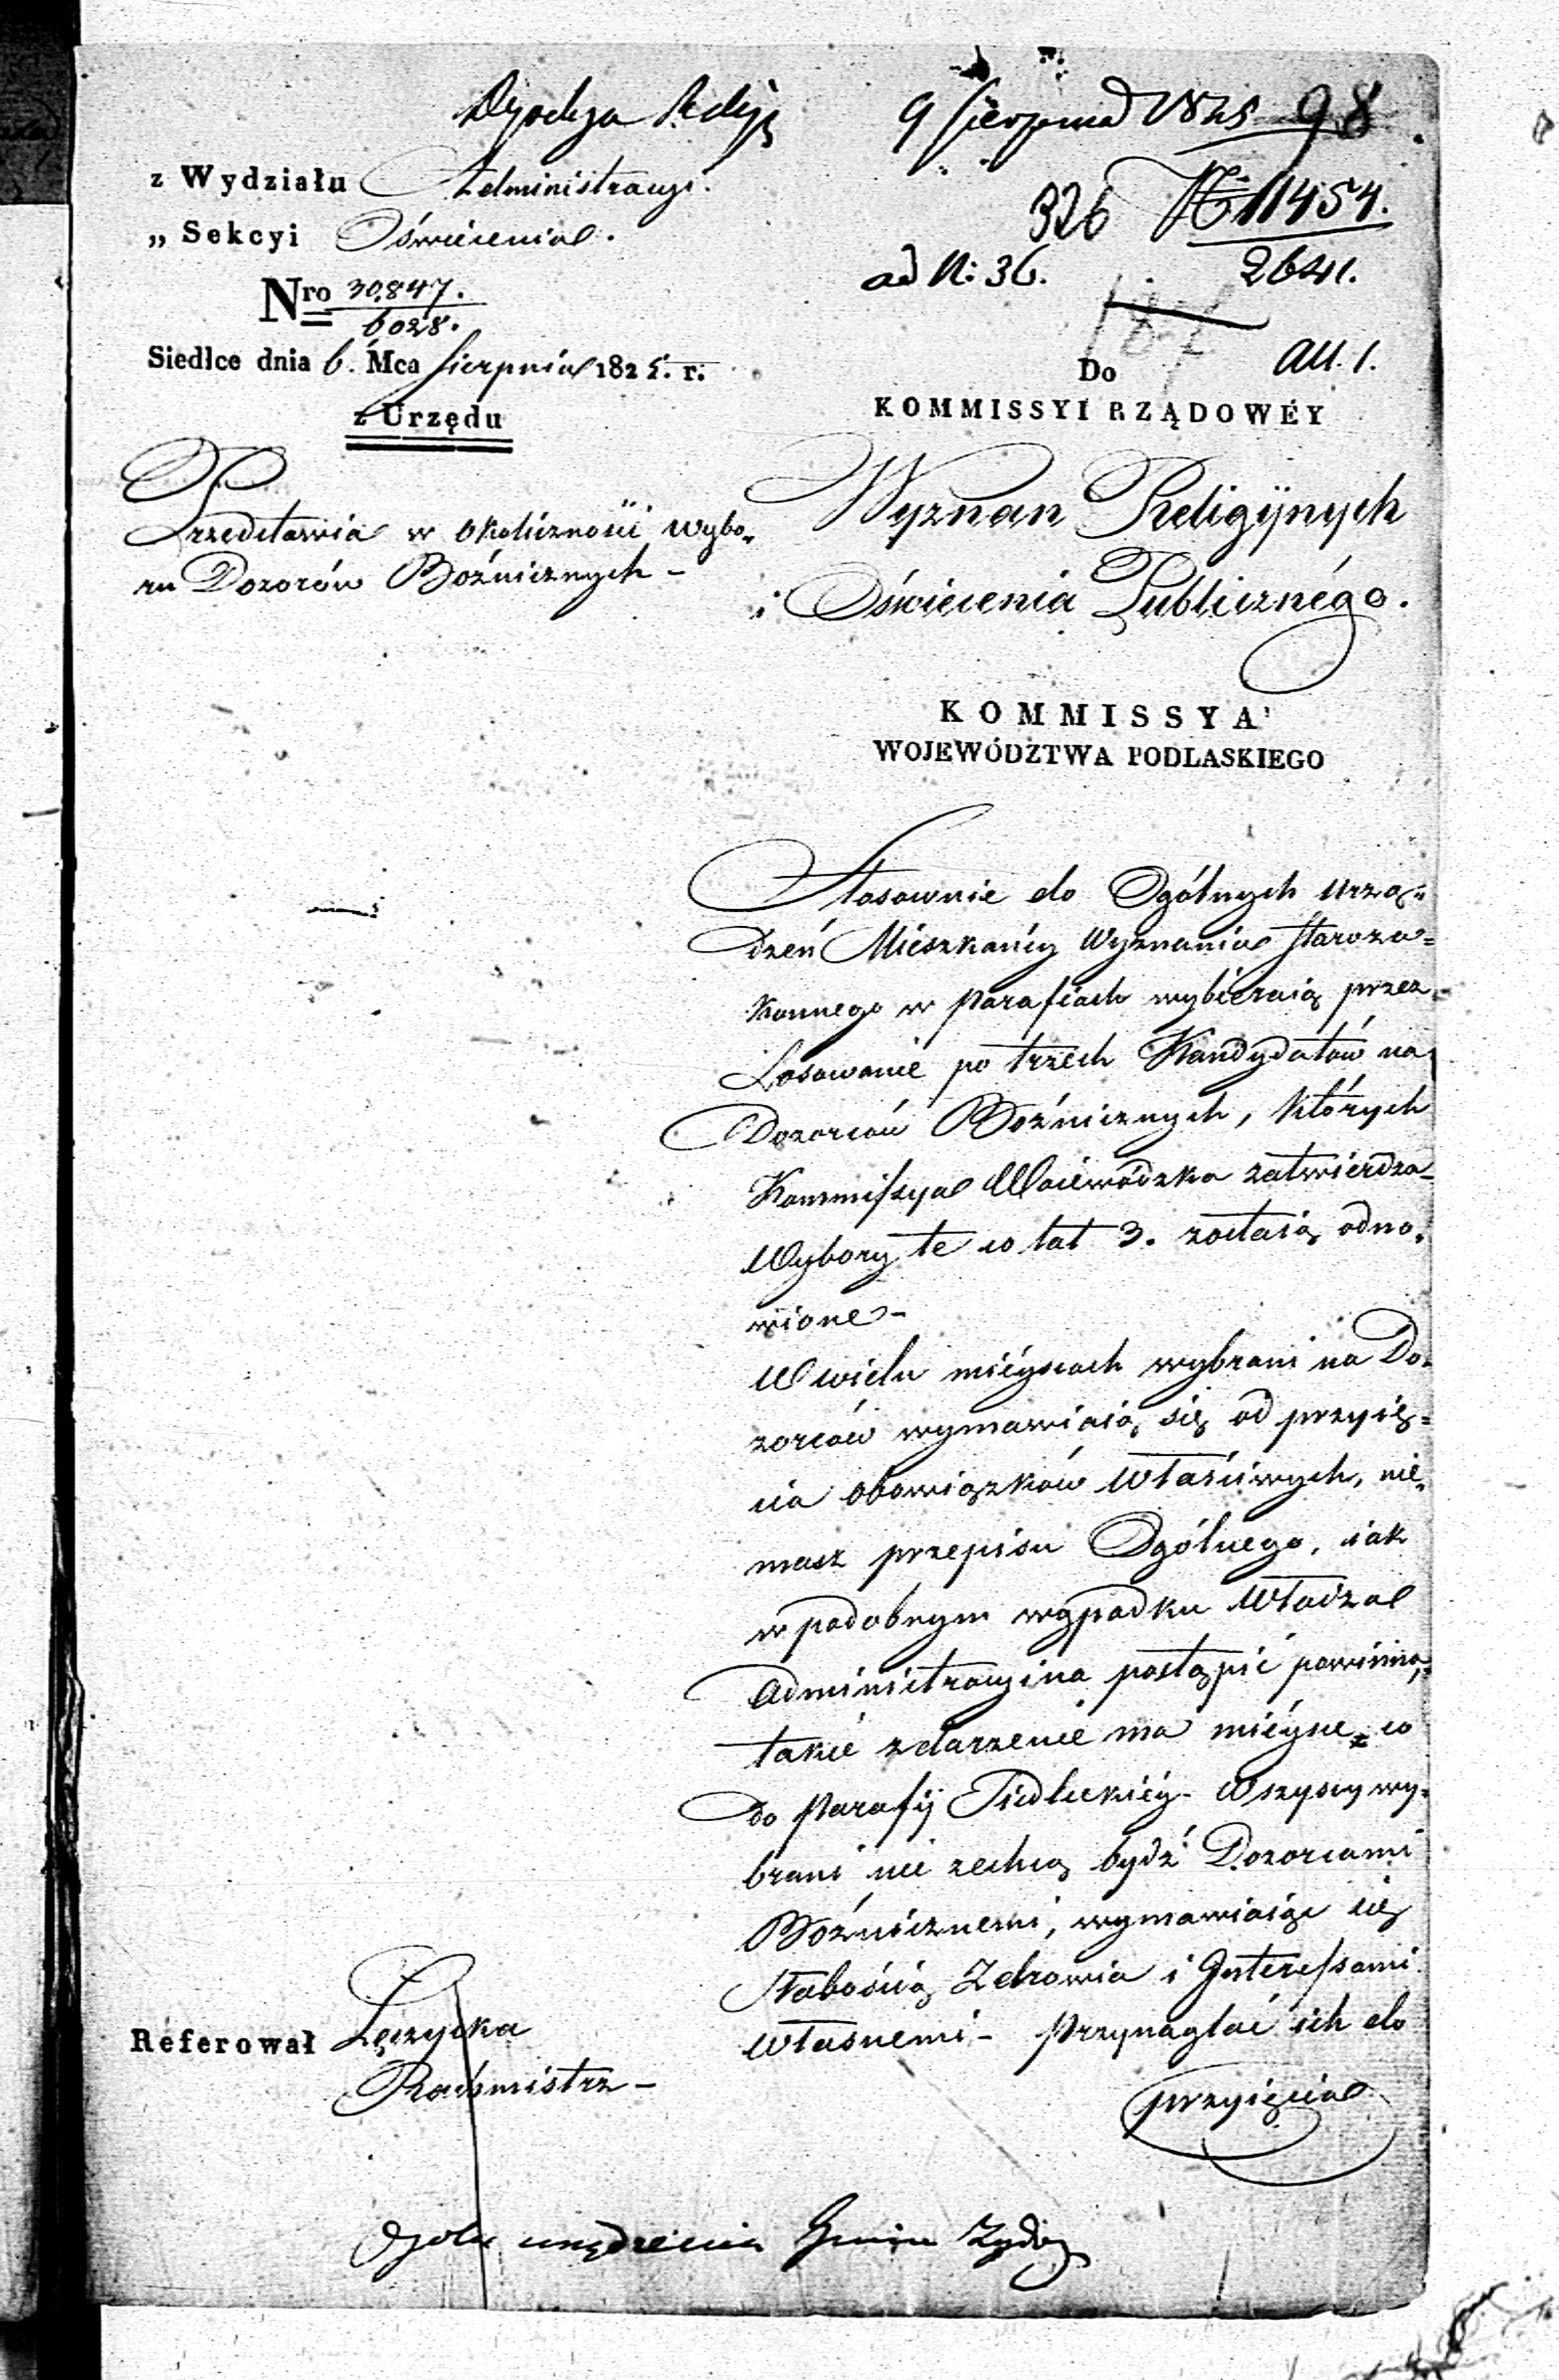 9 Sierpnia 1825 98
z Wydziału Administracyi.
„ Sekcyi Oświecenia.
Nro 30,847.
6028.
Siedlce dnia 6. Mca Sierpnia 1825. r.
z Urzędu
326 N 11454.
2641.
ad N: 36.
All. 1.
Do
KOMMISSYI RZĄDOWÉY
Wyznan Religijnych
i Oświecenia Publicznégo.
Przedstawia w okoliczności wybo„
ru Dozorów Bożnicznych –
KOMMISSYA
WOJEWÓDZTWA PODLASKIEGO
Stosownie do Ogólnych urzą„
dzeń Mieszkańcy Wyznania staroza=
konnego w Parafiach wybieraią przez
Losowanie po trzech Kandydatów na
Dozorców Bożnicznych, których
Kommissya Woiewódzka zatwierdza–
Wybory te co lat 3. zostaią odno„
wione–
W wielu mieyscach wybrani na Do„
zorców wymawiaią się od przyię=
cia obowiązków właściwych, nie„
masz przepisu Ogólnego, iak
w podobnym wypadku Władza
Administracyina postąpić powinna,
takie zdarzenie ma mieysce co
do Parafij Siedleckiéy– Wszyscy wy„
brani nie zechcą bydź Dozorcami
Bożnicznemi, wymawiaiąc się
słabością Zdrowia i Interessami
własnemi– Przynaglać ich do
przyięcia
Referował Łęczycka
Rachmistrz–
urządzenia Gmin Żydow